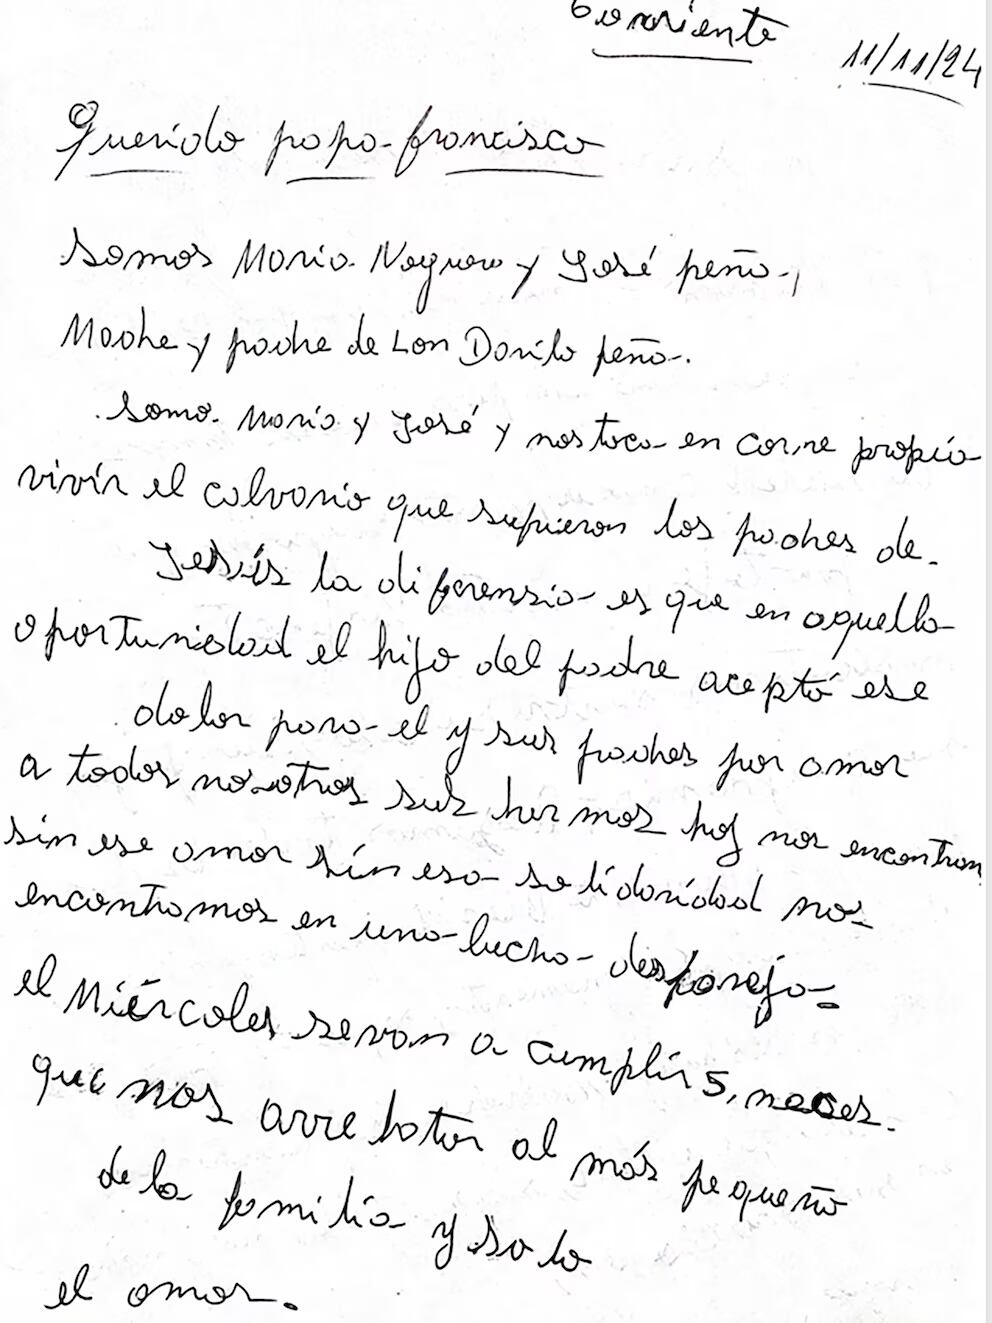 Corriente
11/11/24
Querido papa francisco
Somos Maria Noguera y José peña,
Madre y padre de Loan Danilo peña.
Somo Maria y José y nos toco en carne propia
vivir el calvario que supieron los padres de
Jesús la diferensia es que en aquella
oportunidad el hijo del padre aceptó ese
dolor para el y sus padres por amor
a todos nosotros sus hermos hoy nos encontram
sin ese amor sin esa solidaridad nos
encontramos en una lucha despareja
el Miércoles se van a cumplir 5, meces.
que nos arrebatar al más pequeño
de la familia y solo
el amor.